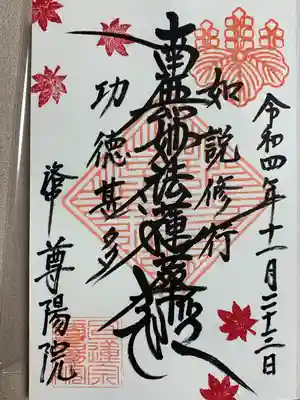 令和四年十一月二十三日
如説修行
南無妙法蓮華経
功徳甚多
尊陽院
日蓮宗